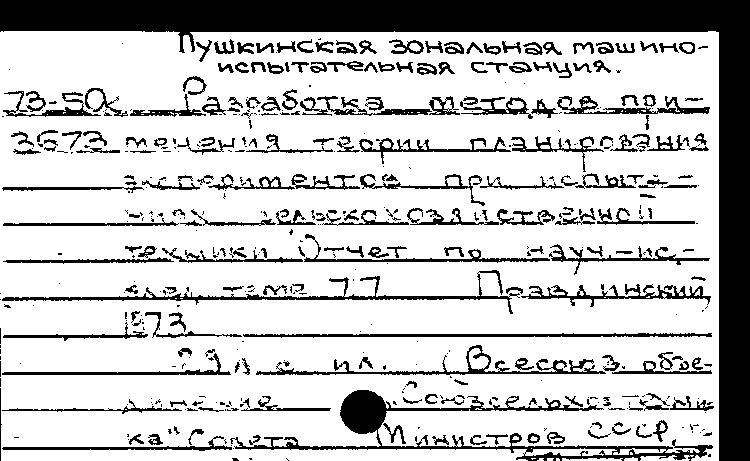 Пушкинская зональная машино-
испытательная станция.
73-50к Разработка методов при-
3673 менения теории планирования
экспериментов при испыта-
ниях сельскохозяйственной
техники. Отчет по науч.-ис-
след. теме 77 Правдинский,
1973.
29 л. с ил. (Всесоюз. объе-
динение „Союзсельхозтехни-
ка" Совета Министров СССР.